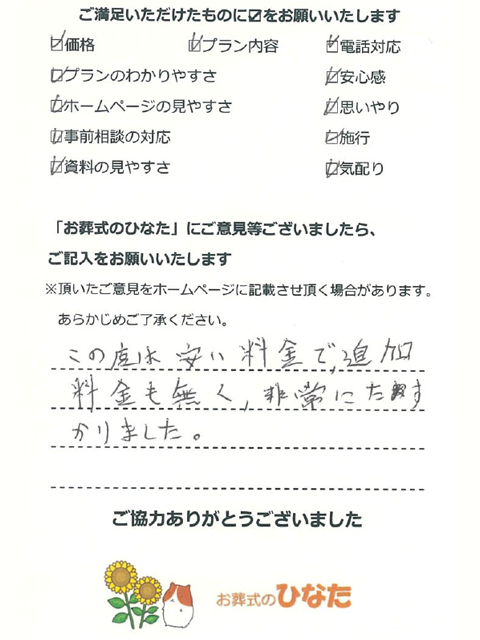 ご満足いただけたものに☑をお願いいたします
☑価格 ☑プラン内容 ☑電話対応
☑プランのわかりやすさ ☑安心感
☑ホームページの見やすさ ☑思いやり
☑事前相談の対応 ☑施行
☑資料の見やすさ ☑気配り
「お葬式のひなた」にご意見等ございましたら、
ご記入をお願いいたします
※頂いたご意見をホームページに記載させ頂く場合があります。
あらかじめご了承ください。
この度は安い料金で、追加
料金も無く、非常にたす
かりました。
ご協力ありがとうございました
お葬式のひなた